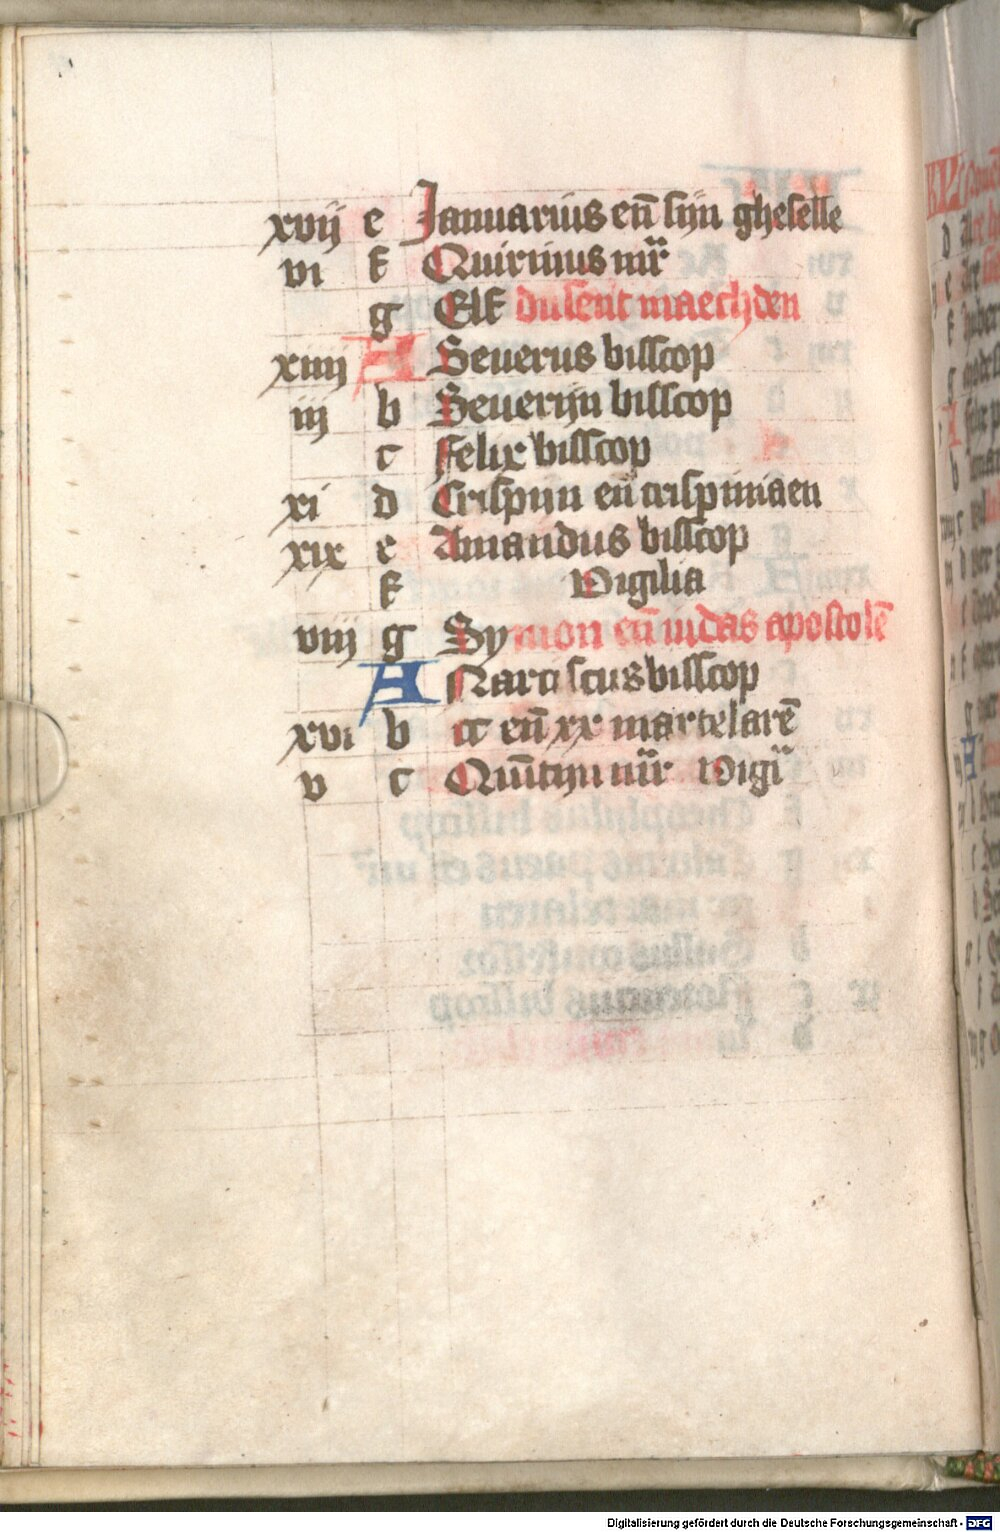 xvij e Januarius en̄ sijn gheselle
vi f Quirinus mr̄
g Elf dusent maechden
xiiij A Seuerus bisscop
iij b Seuerijn bisscop
c Felix bisscop
xi d Crispijn en̄ crispiniaen
xix e Amandus bisscop
f Vigilia
viij g Symon en̄ iudas apostolē
A Narciscus bisscop
xvi b cc en̄ xx martelarē
v c Quintijn mr̄ Vigi
Digitalisierung gefördert durch die Deutsche Forschungsgemeinschaft - DFG